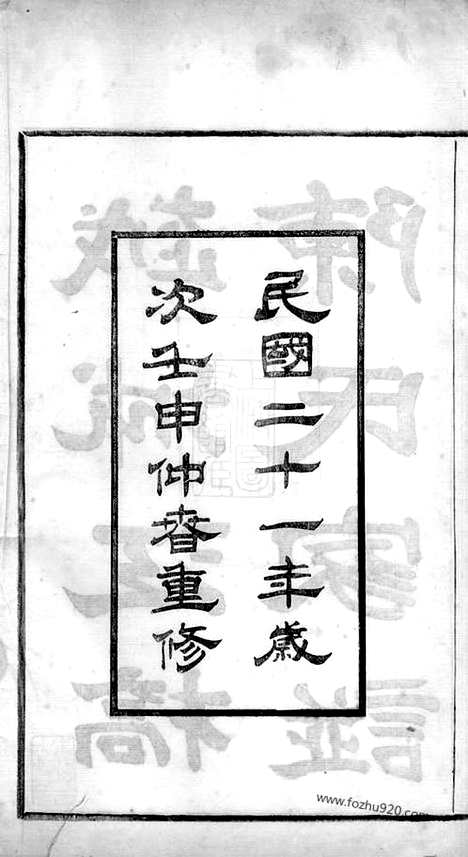 民國二十一年歲
次壬申仲春重修
陳氏家譜
www.fozhu920.com